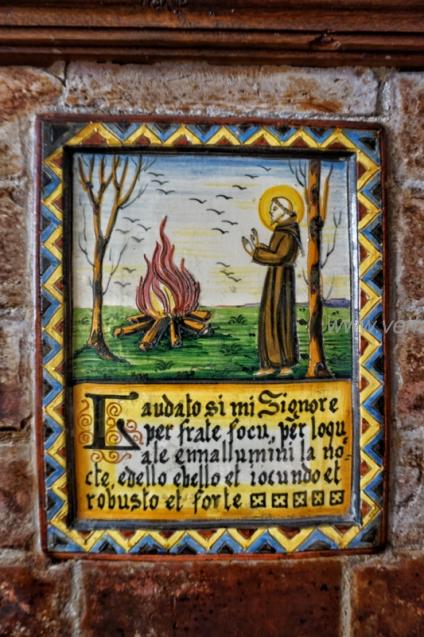 Laudato si mi Signore
per frate focu, per loqu
ale ennallumini la no
cte, edello ebello et iocundo et
robusto et forte
www.ve